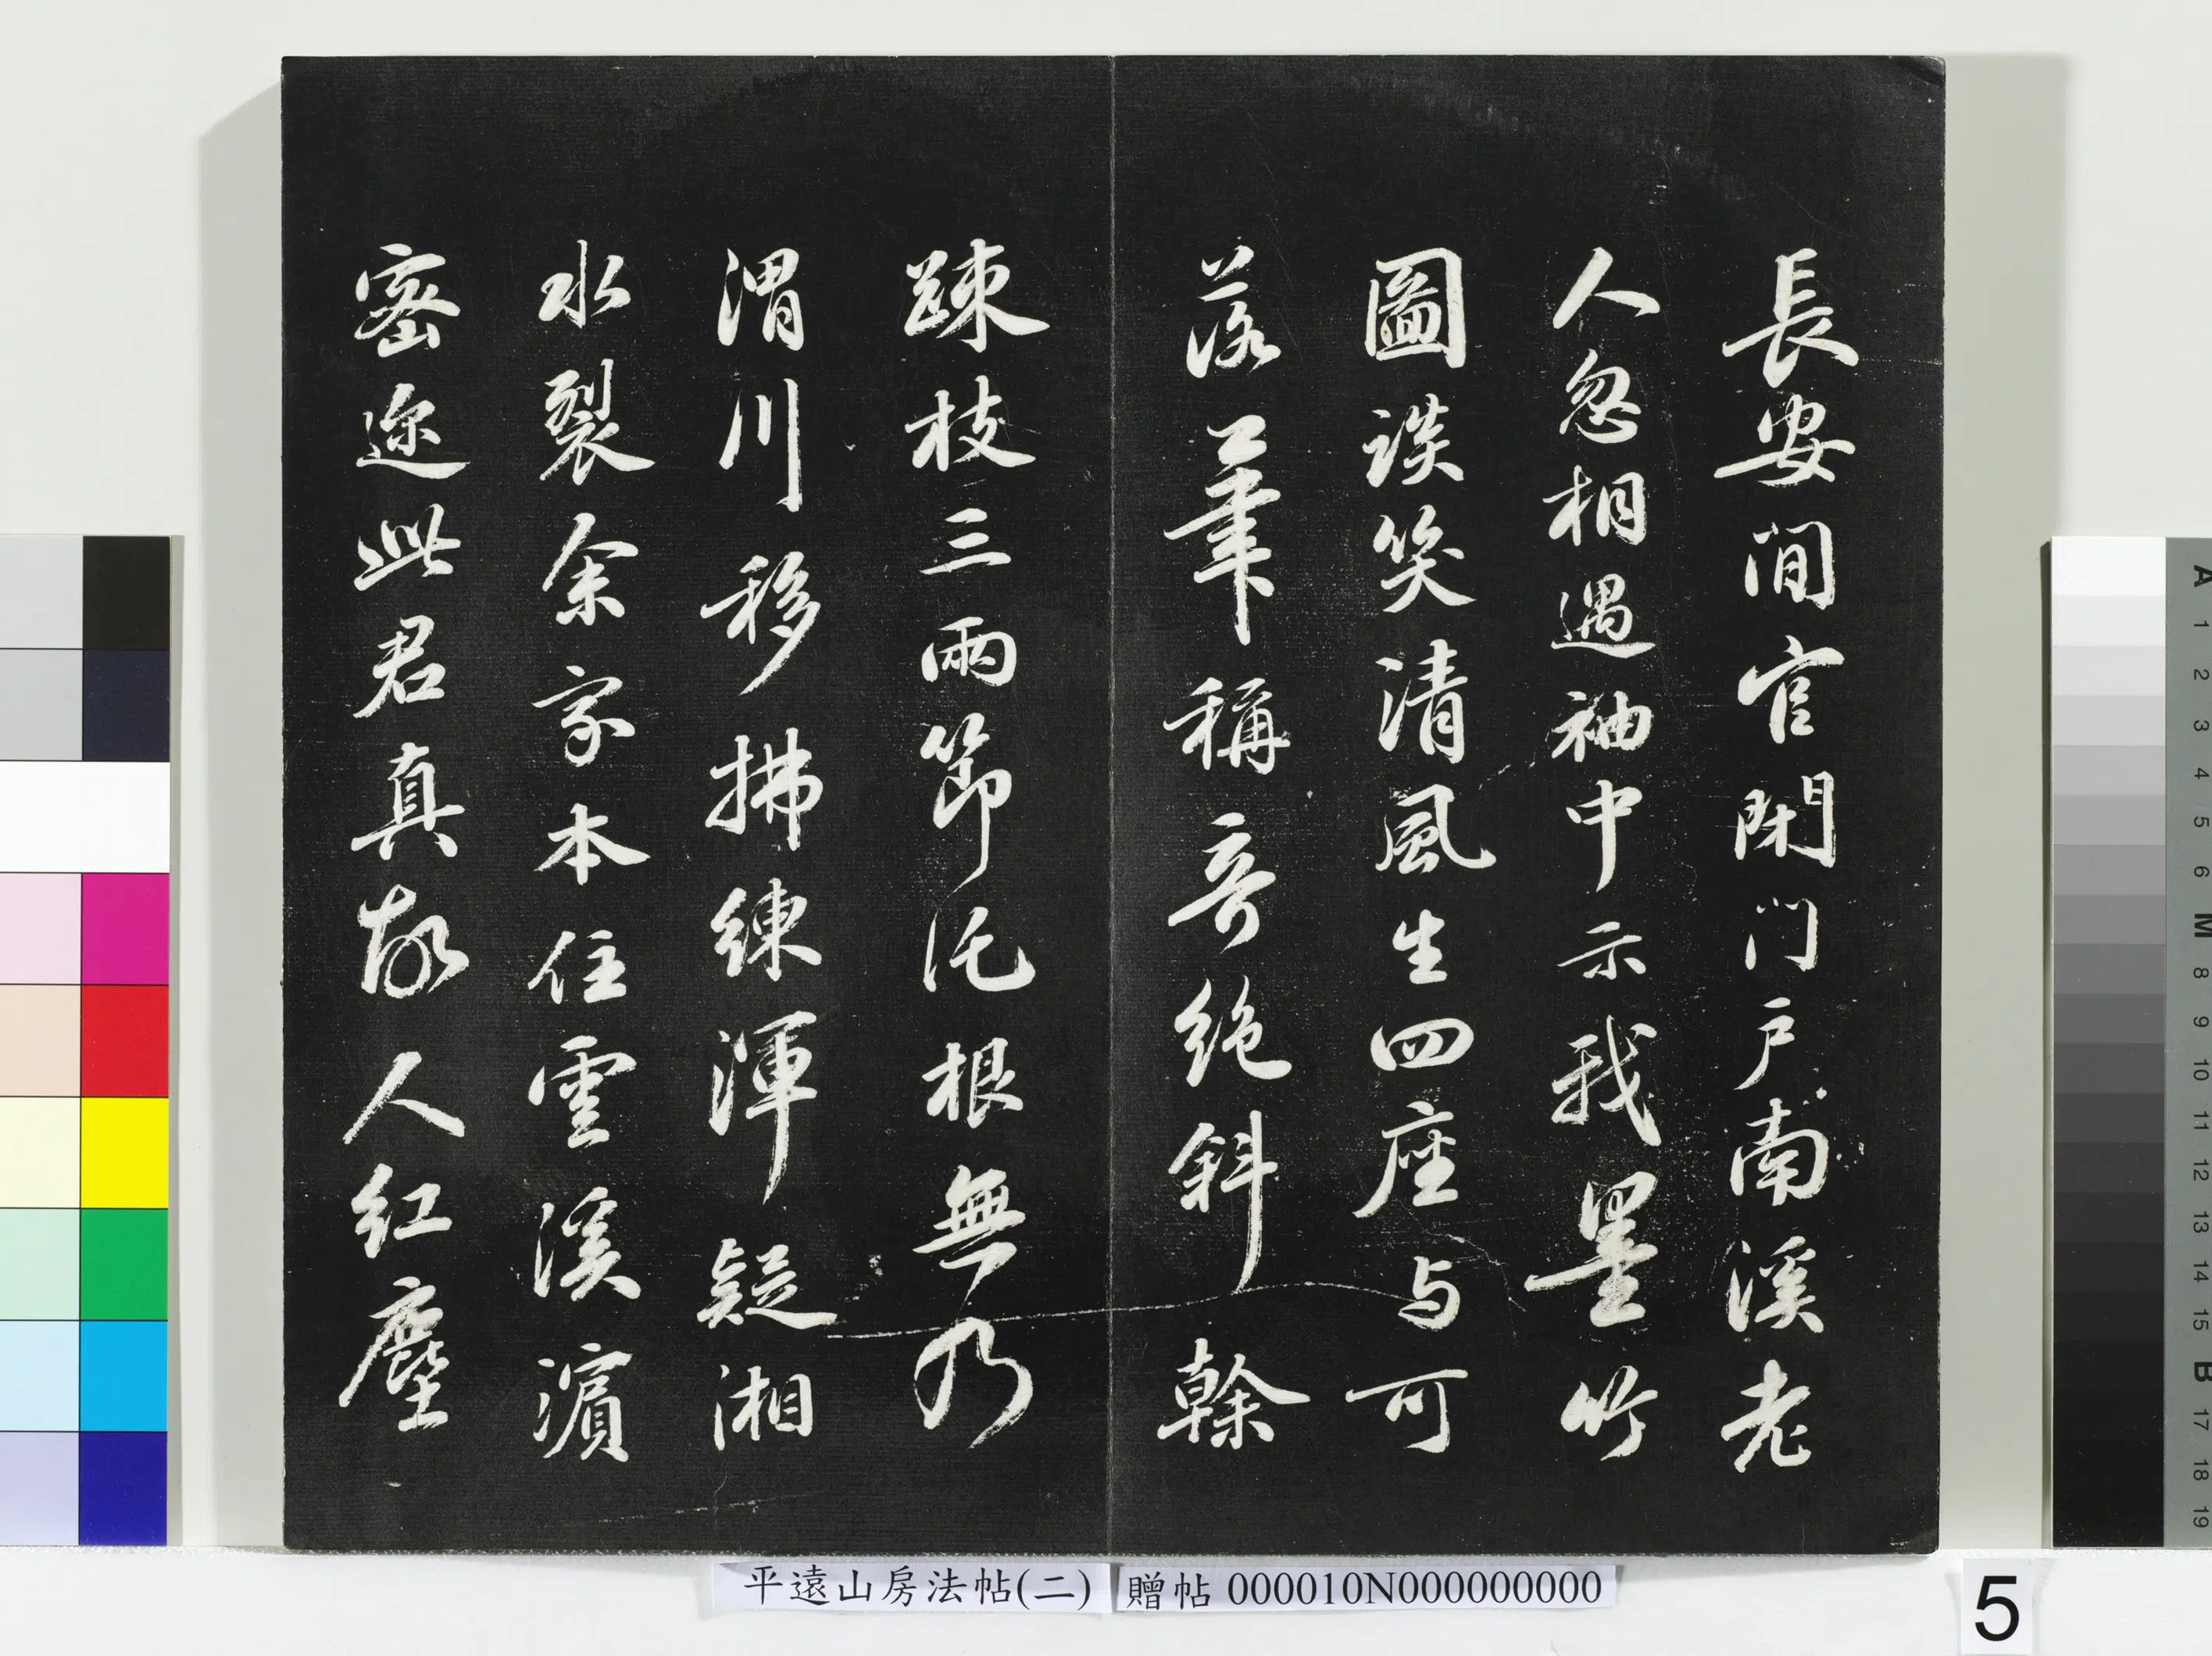 長安閒官閉门戶南溪老
人忽相遇袖中示我墨竹
圖談笑清風生四座与可
落筆稱奇絶斜斜幹
踈枝三兩節託根無乃
渭川移拂練渾疑湘
水裂余家本住雲溪濵
密迩此君真故人红塵
平遠山房法帖(二)
贈帖 000010N000000000
5
A 1 2 3 4 5 6 M 8 9 10 11 12 13 14 15 B 17 18 19